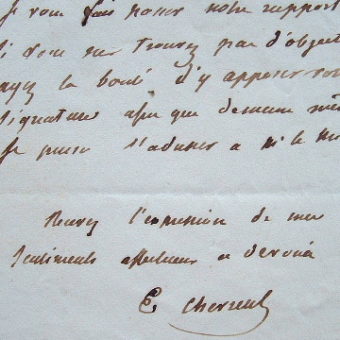 Je vous fais passer notre rapport
si vous ne trouvez pas d'object
ayez la bonté d'y apposer vo
signature afin que demain
je puisse l'adresser a M. le
Recevez l'expression de mes
sentiments affectueux et dévoués
E Chevreul